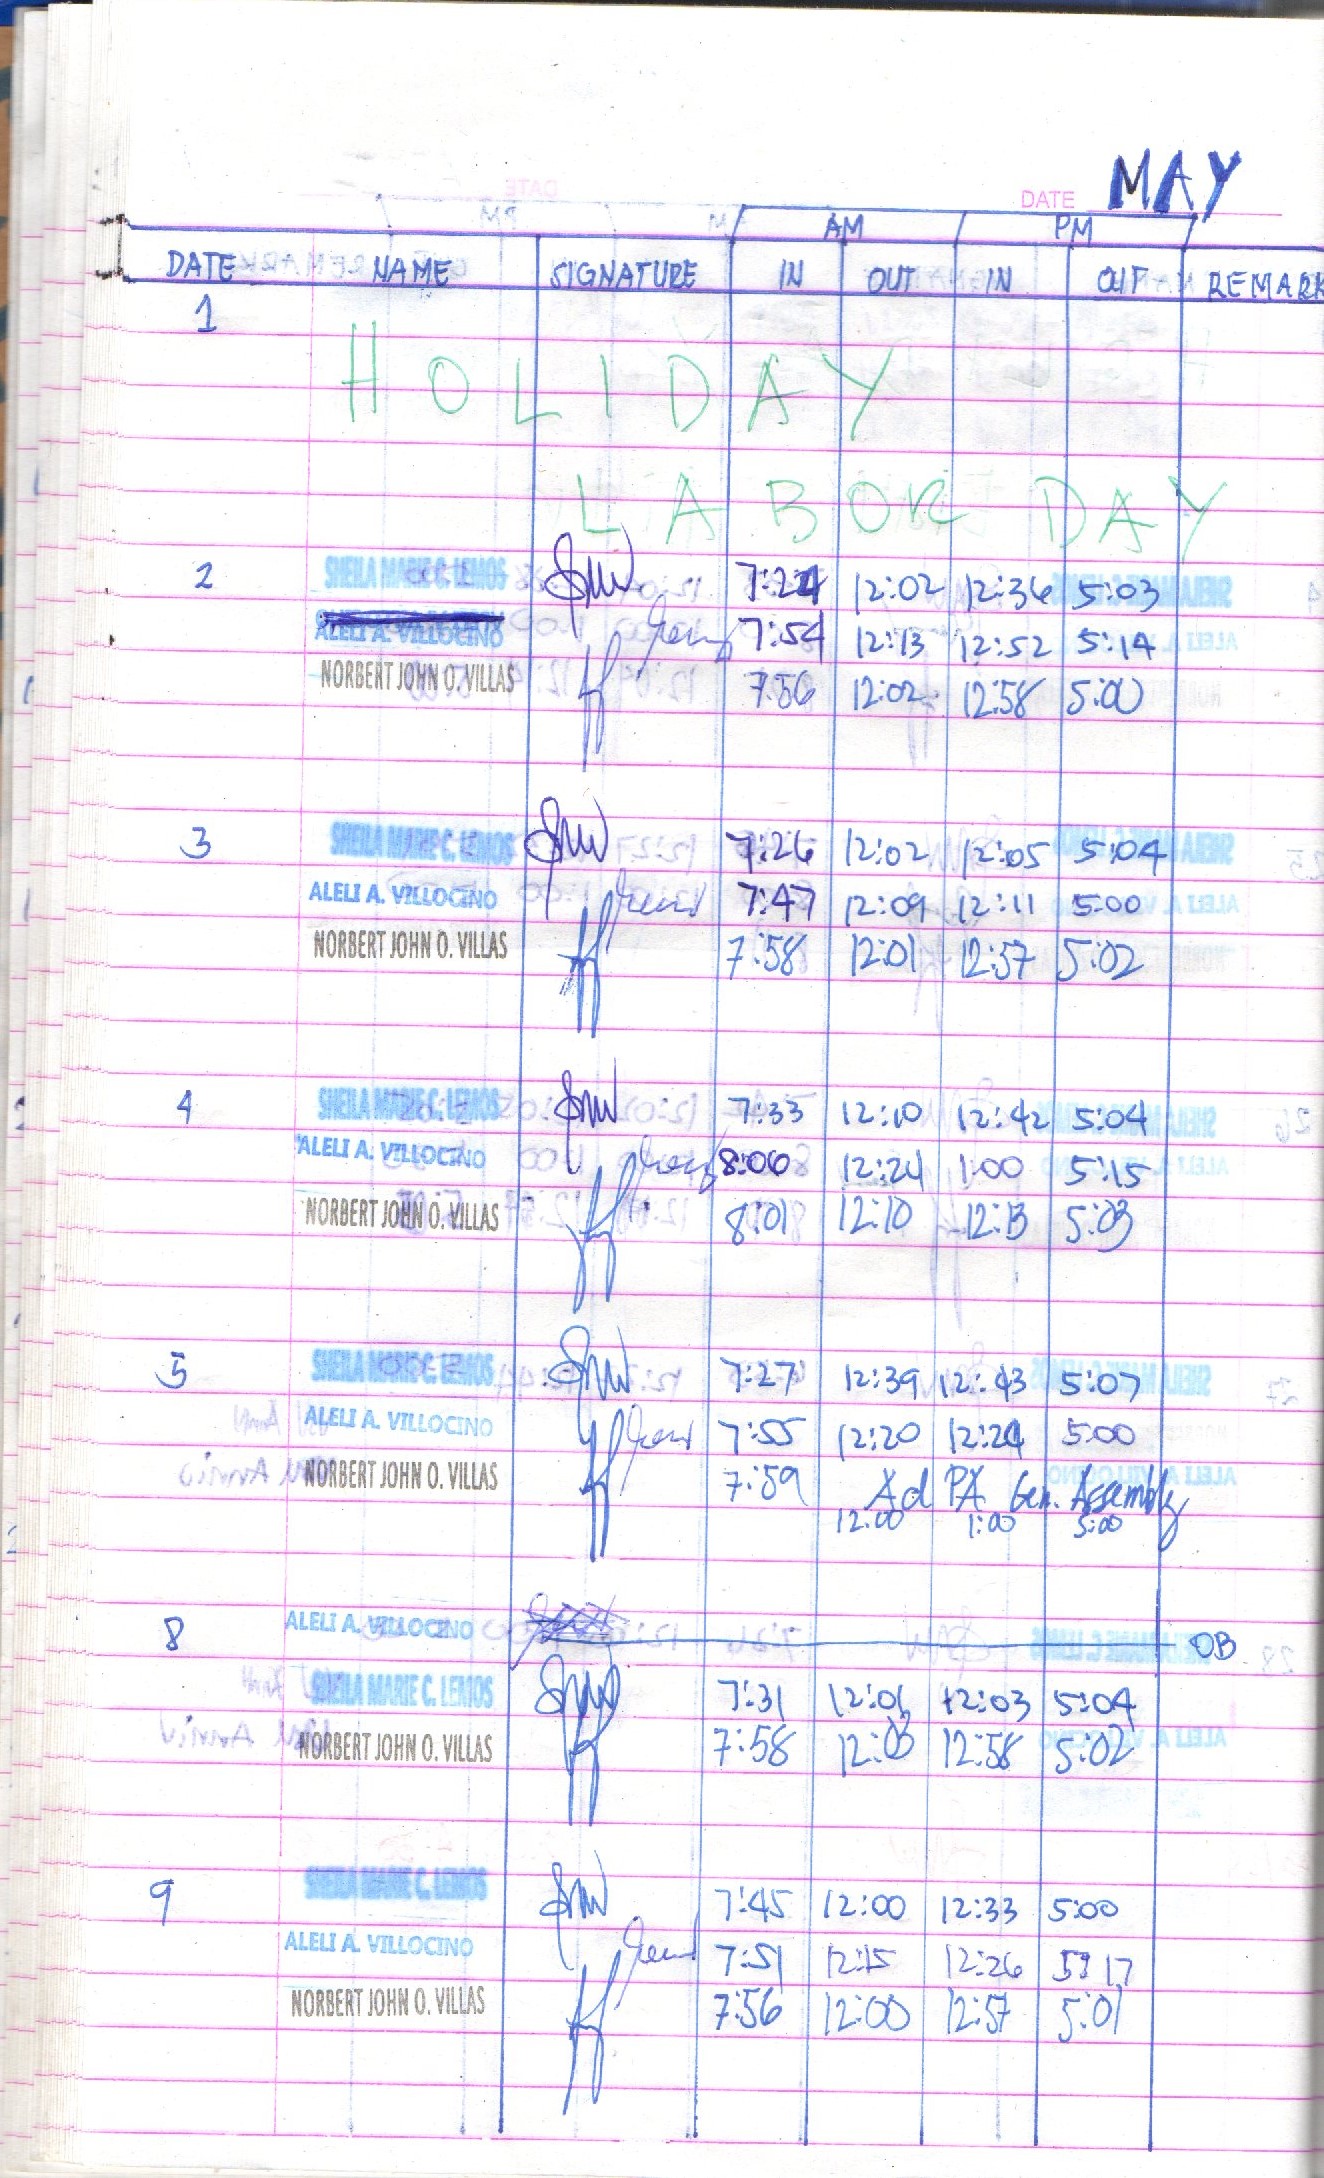 DATE MAY
AM PM
DATE NAME SIGNATURE IN OUT IN OUT REMARK
1
HOLIDAY
LABOR DAY
2 SHEILA MARIE C. LEMOS 7:24 12:02 12:36 5:03
ALELI A. VILLOCINO 7:54 12:13 12:52 5:14
NORBERT JOHN O. VILLAS 7:56 12:02 12:58 5:00
3 SHEILA MARIE C. LEMOS 7:26 12:02 12:05 5:04
ALELI A. VILLOCINO 7:47 12:09 12:11 5:00
NORBERT JOHN O. VILLAS 7:58 12:01 12:57 5:02
4 SHEILA MARIE C. LEMOS 7:33 12:10 12:42 5:04
ALELI A. VILLOCINO 8:06 12:24 1:00 5:15
NORBERT JOHN O. VILLAS 8:01 12:10 12:13 5:03
5 SHEILA MARIE C. LEMOS 7:27 12:39 12:43 5:07
ALELI A. VILLOCINO 7:55 12:20 12:24 5:00
NORBERT JOHN O. VILLAS 7:59 Ad PA Gen. Assembly
12:00 1:00 5:00
8 ALELI A. VILLOCINO OB
SHEILA MARIE C. LEMOS 7:31 12:01 12:03 5:04
NORBERT JOHN O. VILLAS 7:58 12:03 12:58 5:02
9 SHEILA MARIE C. LEMOS 7:45 12:00 12:33 5:00
ALELI A. VILLOCINO 7:51 12:15 12:26 5:17
NORBERT JOHN O. VILLAS 7:56 12:00 12:57 5:01